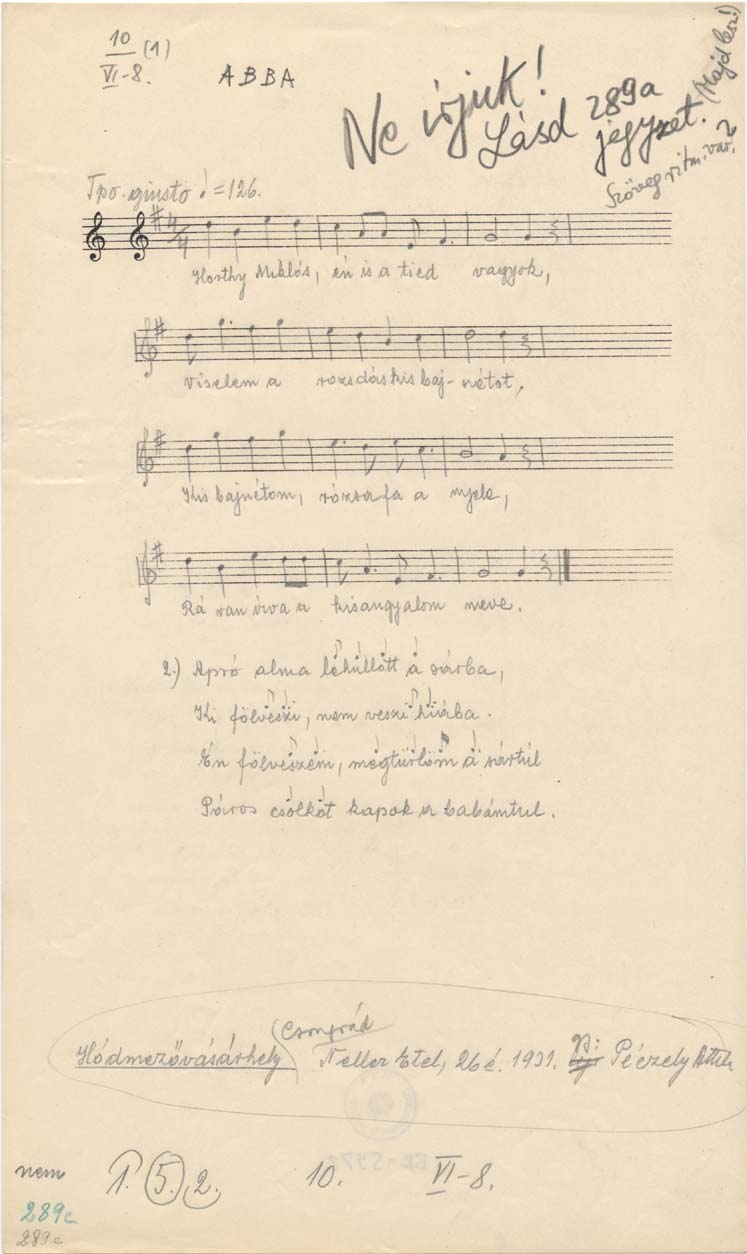 10 (1)
VI-8.
ABBA
Ne írjuk!
Lásd 289a
jegyzet. (Majd lesz!)
Szöveg ritm. var.?
Tpo. giusto ♩=126.
4/4
Horthy Miklós, én is a tied vagyok,
Viselem a rozsdás kis baj-nétot,
Kis bajnétom, rózsafa a nyele,
Rá van írva a kisangyalom neve.
2.) Apró alma lehullott a sárba,
Ki fölveszi, nem veszi hiába.
Én fölveszem, megtürlöm a sártúl
Páros csólkót kapok a babámtul.
(Csongrád
Hódmezővásárhely) Neller Etel, 26 é. 1931. gy: Péczely Attila
nem 1. 5. 2. 10. VI-8.
289c
289c